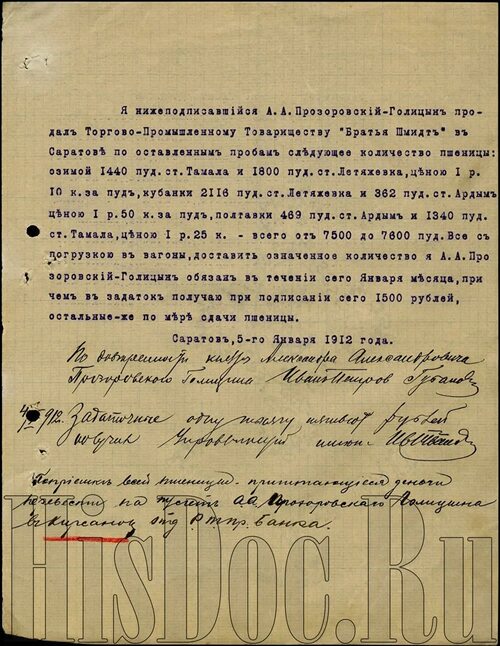 Я нижеподписавшійся А.А.Прозоровскій-Голицынъ про-
далъ Торгово-Промышленному Товариществу "Братья Шмидтъ" въ
Саратовѣ по оставленнымъ пробамъ слѣдующее количество пшеницы:
озимой 1440 пуд.ст.Тамала и 1800 пуд.ст.Летяжевка, цѣною I р.
10 к.за пудъ, кубанки 2116 пуд.ст.Летяжевка и 362 пуд.ст.Ардымъ
цѣною I р.50 к. за пудъ, полтавки 469 пуд.ст.Ардымъ и 1340 пуд.
ст.Тамала, цѣною I р.25 к. - всего отъ 7500 до 7600 пуд. Все съ
погрузкою въ вагоны, доставить означенное количество я А.А.Про
зоровскій-Голицынъ обязанъ въ теченіи сего Января мѣсяца, при
чемъ въ задатокъ получаю при подписаніи сего 1500 рублей,
остальные-же по мѣрѣ сдачи пшеницы.
Саратовъ, 5-го Января 1912 года.
По довѣренности князя Александра Александровича
Прозоровскаго Голицына Иванъ
912. Задаточные одну тысячу пятьсот рублей
получил
всей пшеницы причитающіеся деньги
перевести на А.А. Прозоровскаго Голицына
банка.
HisDoc.Ru